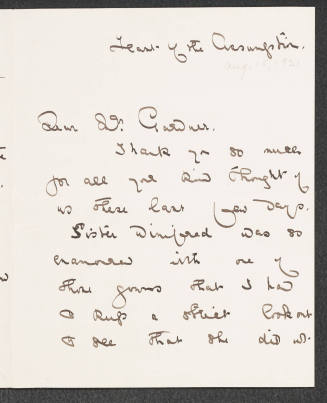 Feast of the Assumption.
Aug. 15, 1921
Dear Mr. Gardner.
Thank you so much
for all your kind thought of
us these last few days.
Sister Winifred was so
enamoured with one of
those gowns that I had
to keep a strict lookout
to see that she did not